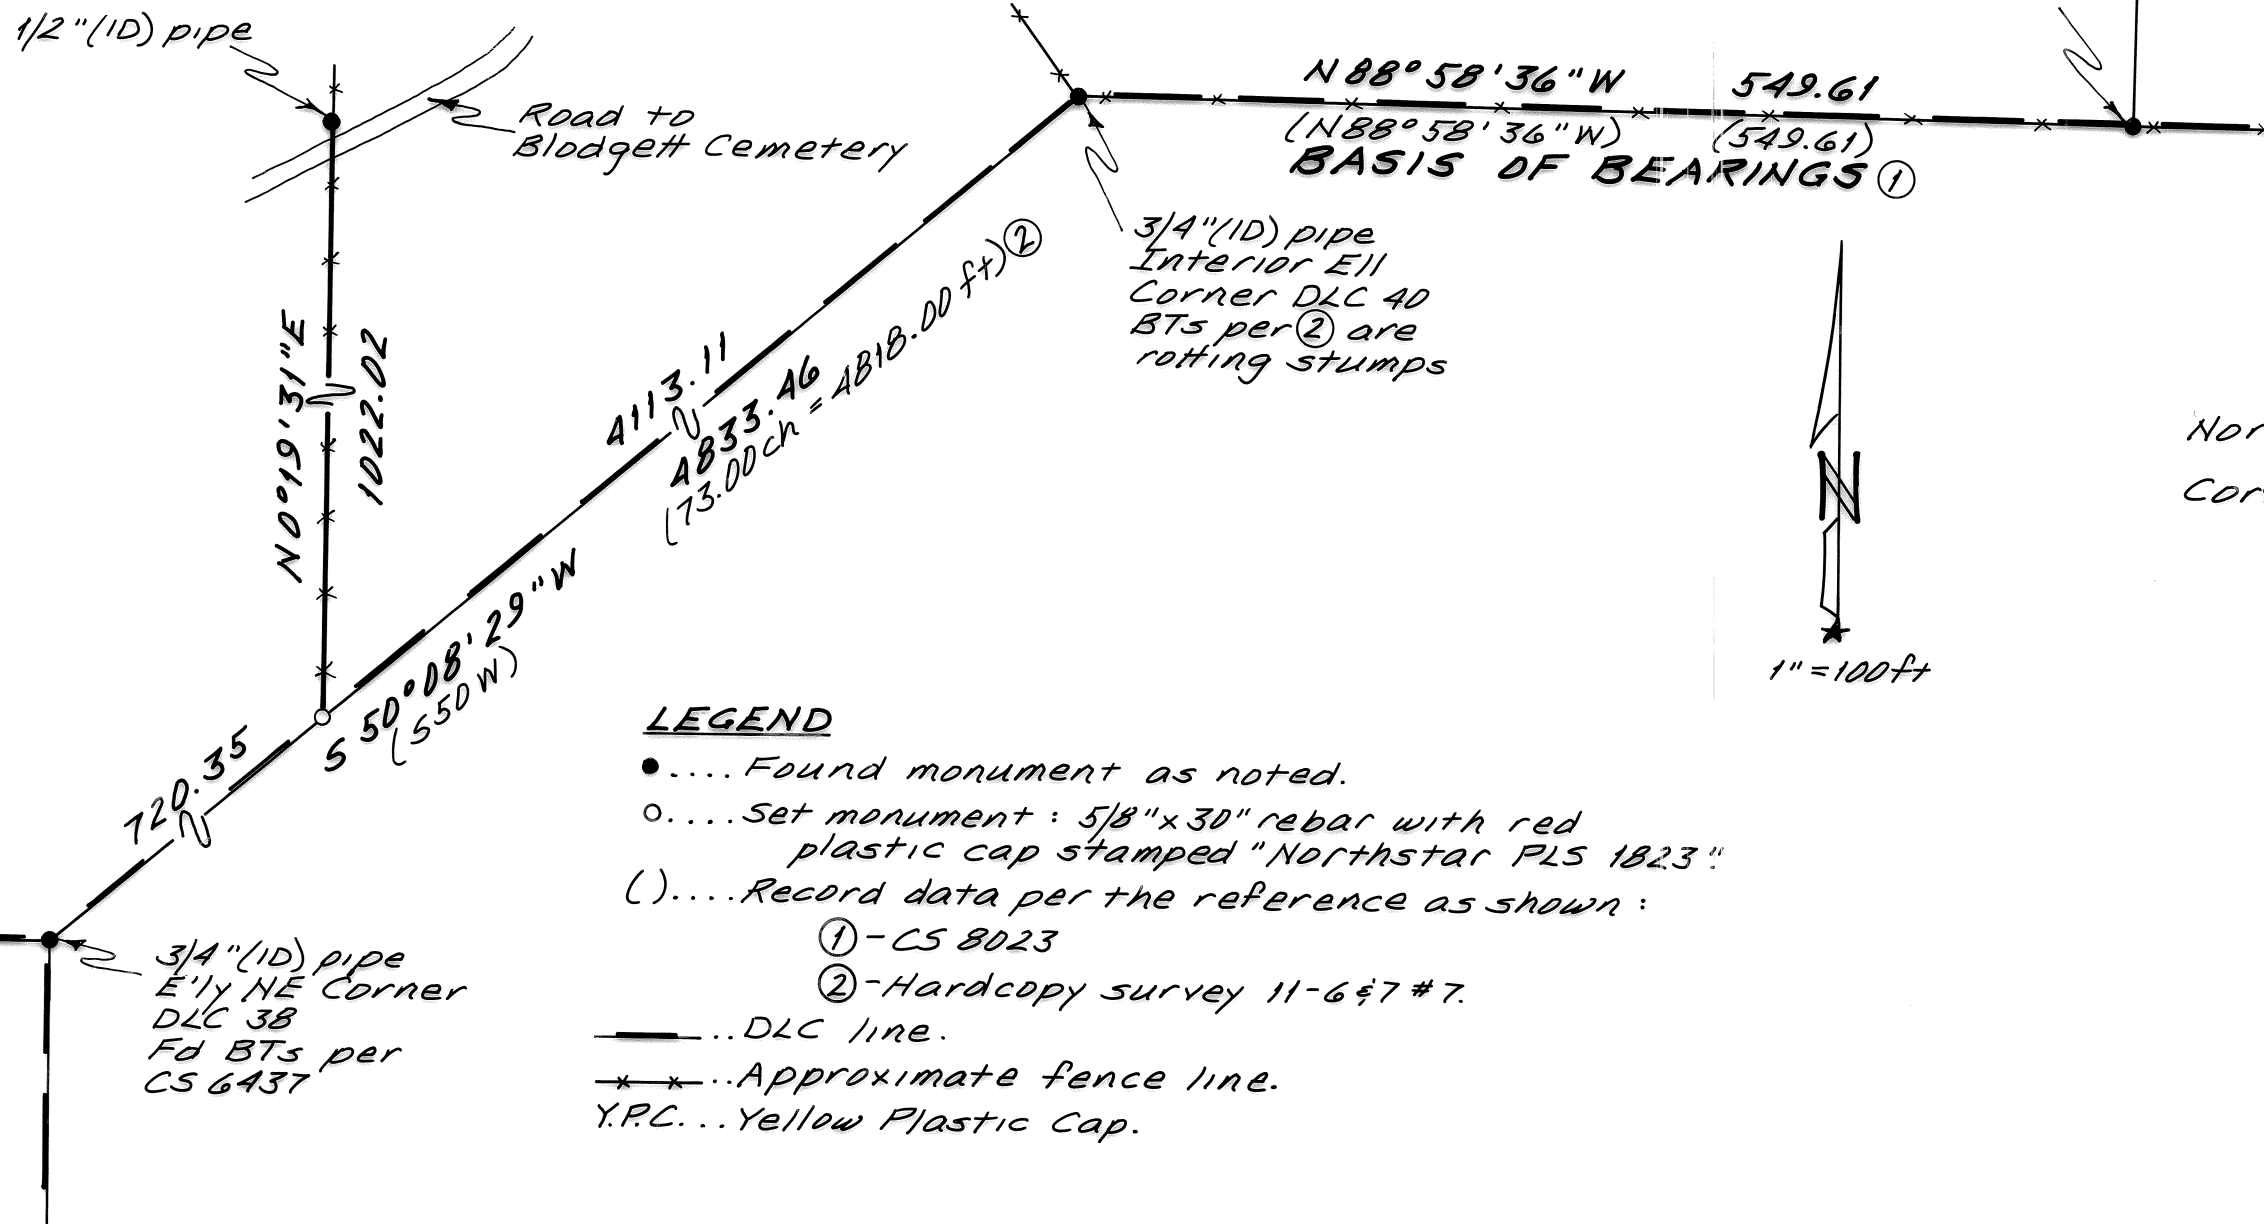 1/2"(ID) pipe
Road to
Blodgett Cemetery
N88°58'36"W 549.61
(N88°58'36"W) (549.61)
BASIS OF BEARINGS ①
3/4"(ID) pipe
Interior Ell
Corner DLC 40
BTs per ② are
rotting stumps
N0°19'31"E
1022.02
4113.11
4833.46
(73.00ch = 4818.00 ft) ②
S 50°08'29"W
(S50W)
720.35
N
1"=100ft
Nor
Cor
3/4"(ID) pipe
E'ly NE Corner
DLC 38
Fd BTs per
CS 6437
LEGEND
●.... Found monument as noted.
○.... Set monument : 5/8"x30" rebar with red
plastic cap stamped "Northstar PLS 1823"
( ).... Record data per the reference as shown :
① - CS 8023
② - Hardcopy survey 11-6&7 #7.
.. DLC line.
.. Approximate fence line.
Y.P.C... Yellow Plastic Cap.